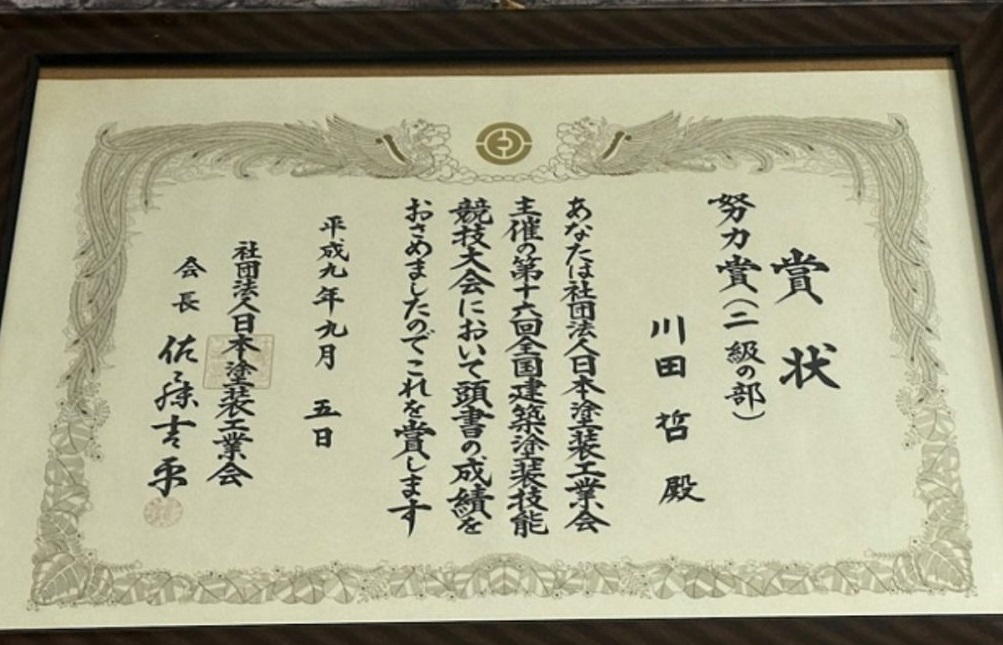 賞状
努力賞(二級の部)
川田哲殿
あなたは社団法人日本塗装工業会
主催の第十六回全国建築塗装技能
競技大会において頭書の成績を
おさめましたのでこれを賞します
平成九年九月五日
社団法人日本塗装工業会
会長 佐々木吉平